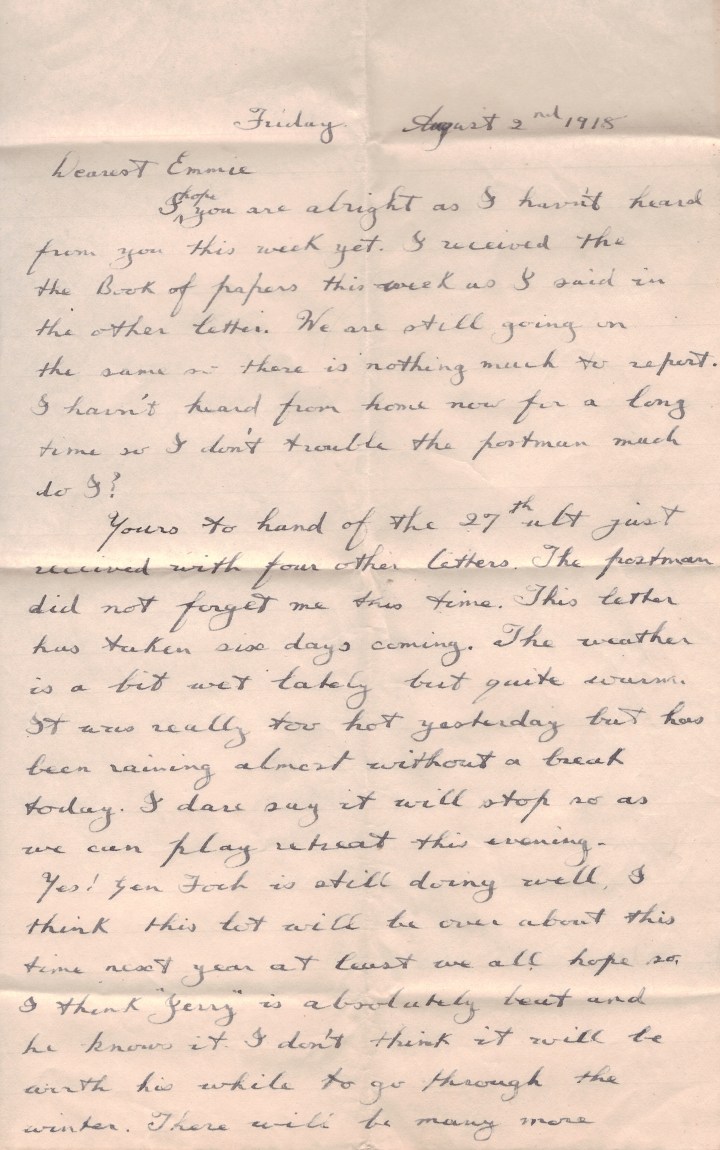 Friday. August 2nd 1918
Dearest Emmie
I hope you are alright as I havn't heard
from you this week yet. I received the
the Book of papers this week as I said in
the other letter. We are still going on
the same so there is nothing much to report.
I havn't heard from home now for a long
time so I don't trouble the postman much
do I?
Yours to hand of the 27th ult just
received with four other letters. The postman
did not forget me this time. This letter
has taken six days coming. The weather
is a bit wet lately but quite warm.
It was really too hot yesterday but has
been raining almost without a break
today. I dare say it will stop so as
we can play retreat this evening.
Yes! Gen Foch is still doing well, I
think this lot will be over about this
time next year at least we all hope so.
I think "Jerry" is absolutely beat and
he knows it. I don't think it will be
worth his while to go through the
winter. There will be many more